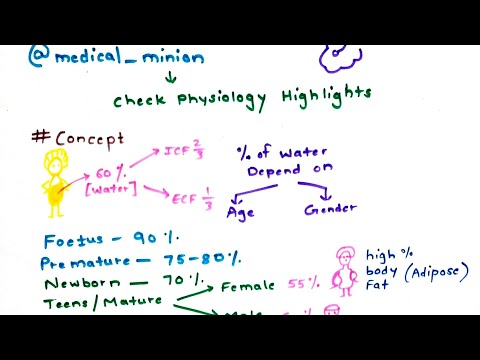 @medical_minion
check Physiology Highlights
# Concept
60 %.
[water]
ICF 2/3
ECF 1/3
% of water
Depend on
Age
Gender
Foetus - 90 %.
Premature - 75-80%.
Newborn - 70 %.
Teens/Mature
Female 55 %.
high %
body (Adipose)
Fat